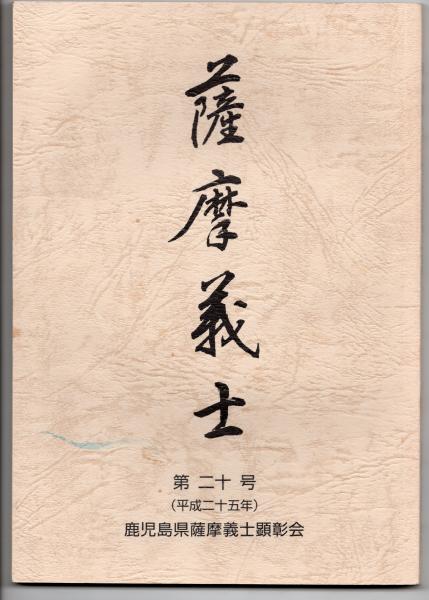 薩摩義士
第 二十 号
(平成二十五年)
鹿児島県薩摩義士顕彰会